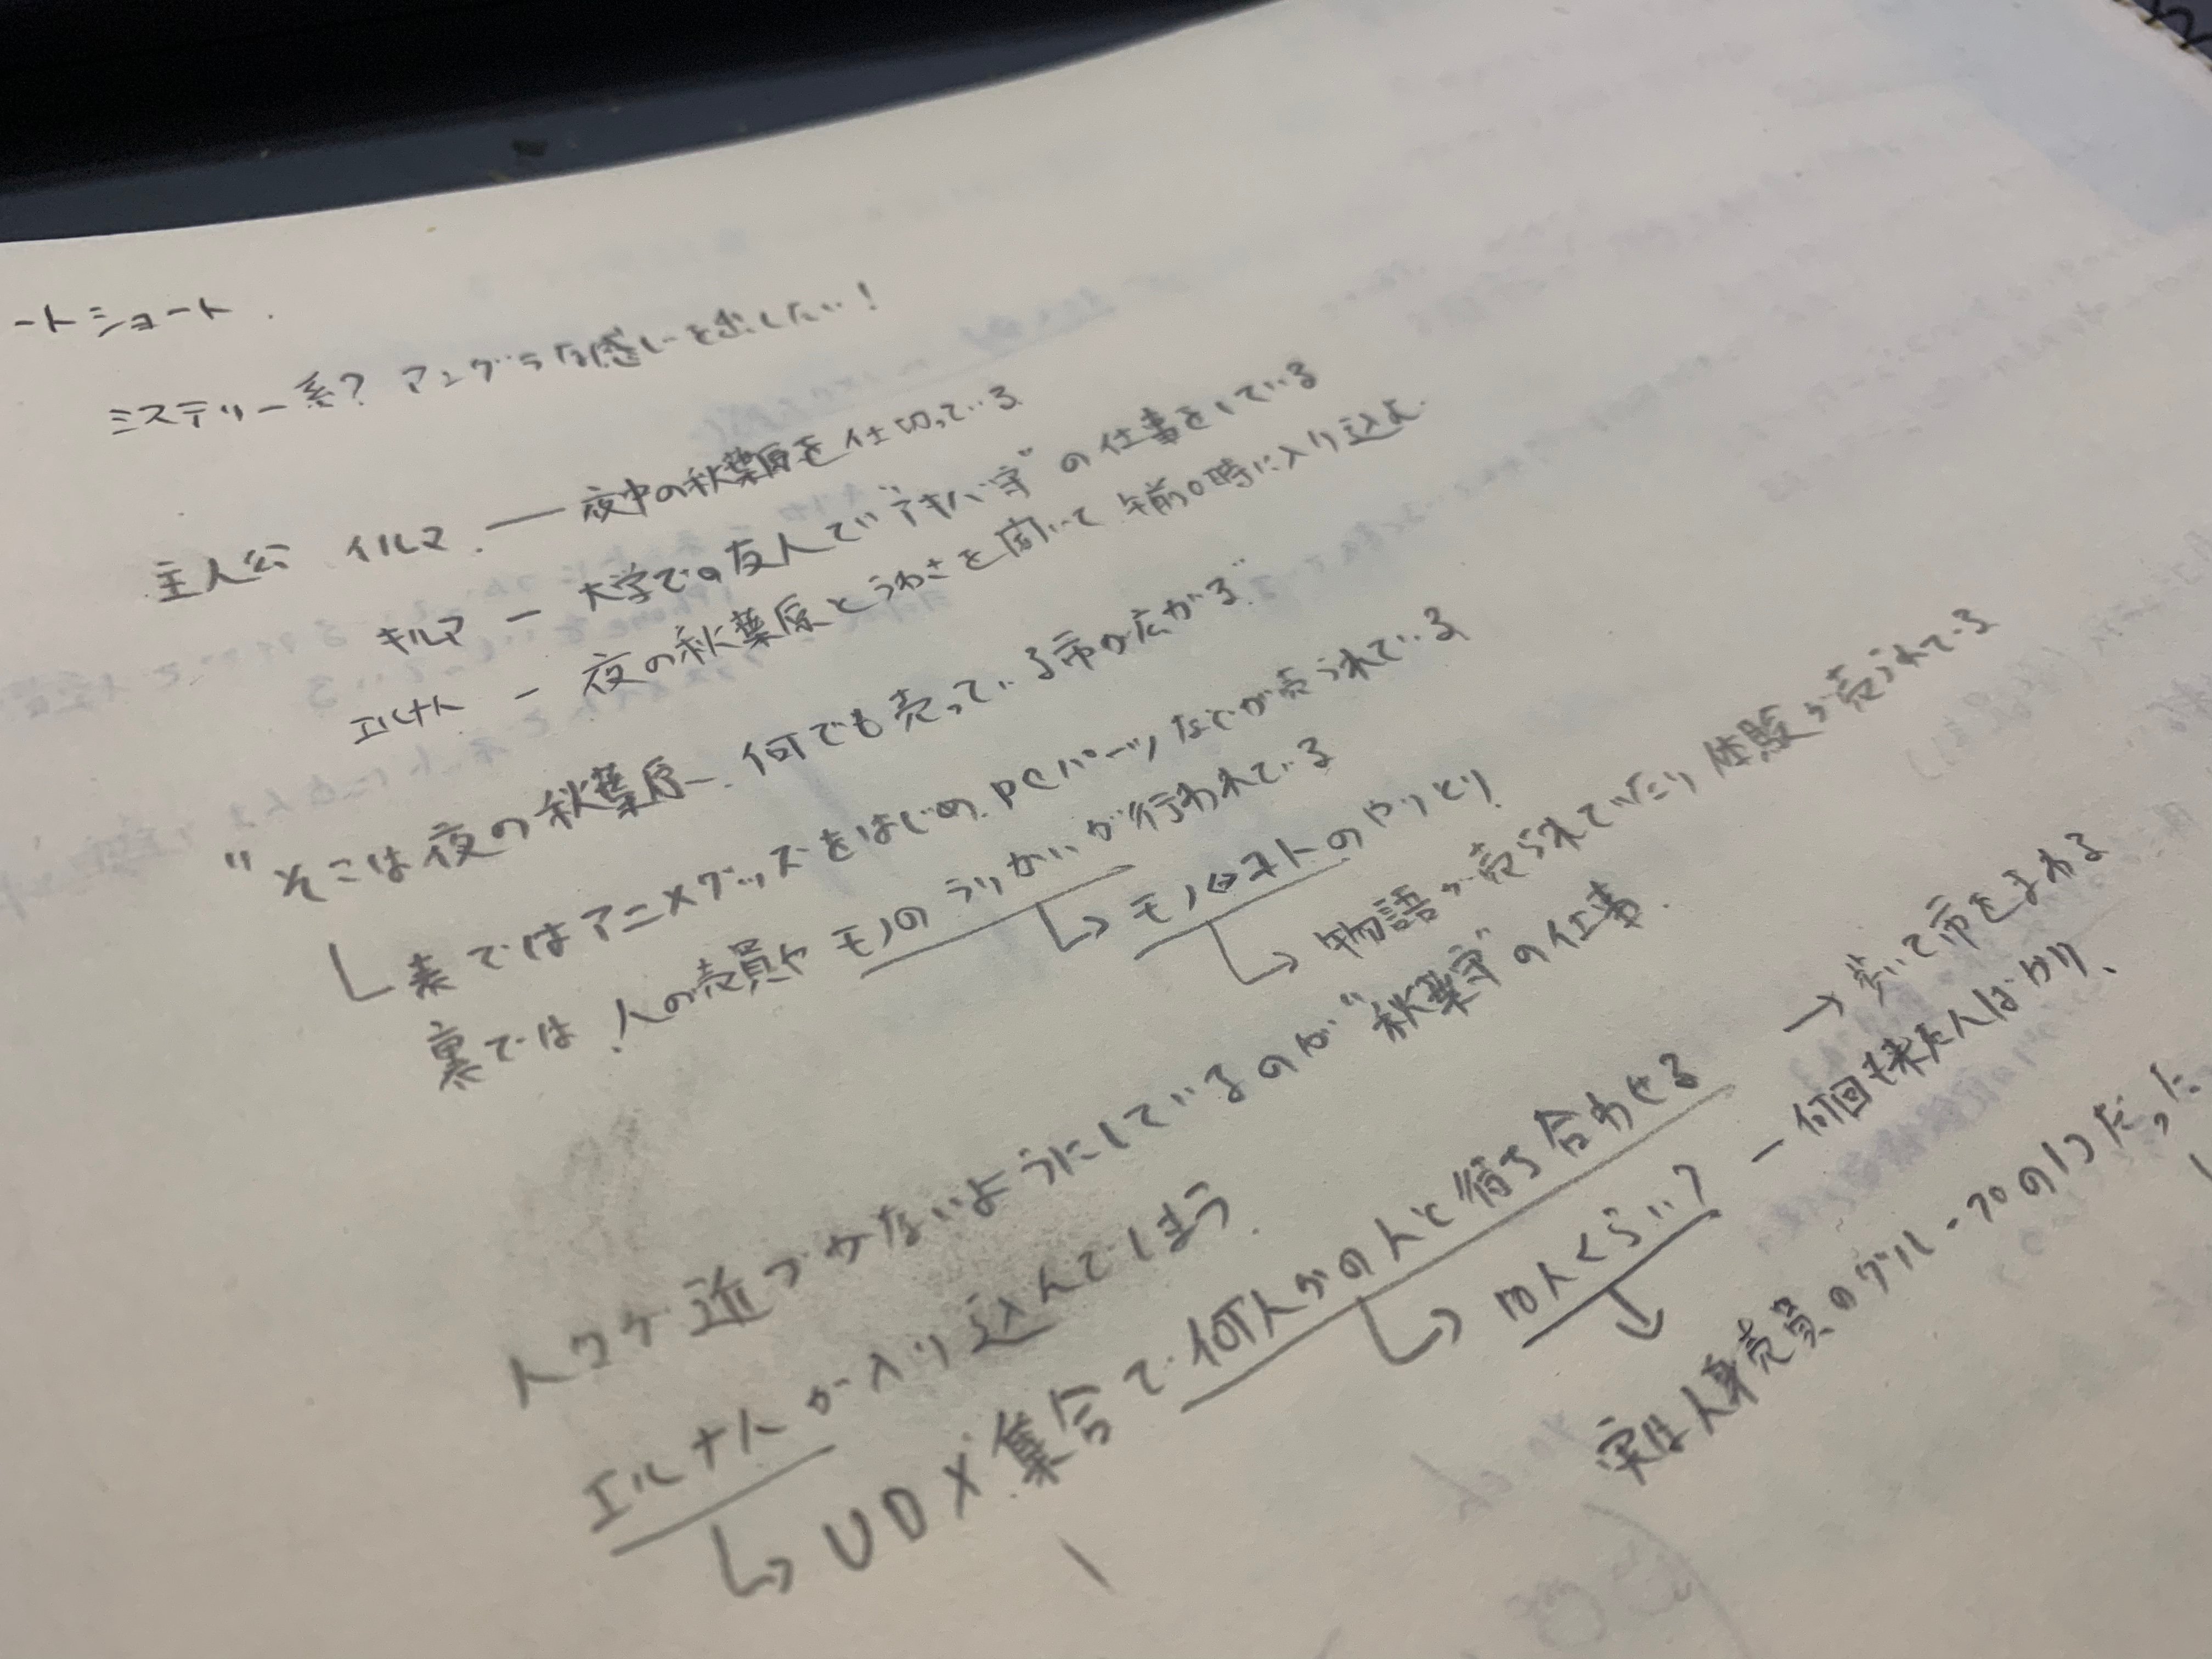 ートショート.
ミステリー系? アングラな感じを出したい!
主人公 イルマ. ― 夜中の秋葉原を仕切っている
キルア ― 大学での友人で"アキバ守"の仕事をしている
エルナト ― 夜の秋葉原とうわさを聞いて 午前0時に入り込む.
"そこは夜の秋葉原―.何でも売っている市が広がる."
表ではアニメグッズをはじめ.PCパーツなどが売られている
裏では.人の売買やモノのうりかいが行われている
→ モノ⇔ヒトのやりとり
→ 物語が売られていたり 体験が売られている
人ワケ近づケないようにしているのが"秋葉守"の仕事.
エルナトが入り込んでしまう.
→ UDX集合で何人かの人と待ち合わせる → 歩いて市をまわる
→ 10人くらい? ― 何回も来た人ばかり、
↓
実は人身売買のグループの1つだった